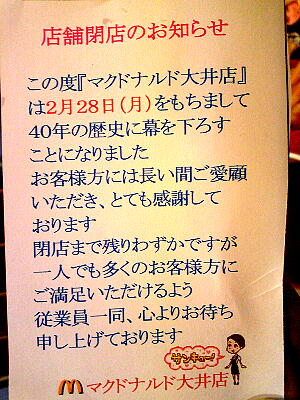 店舗閉店のお知らせ
この度『マクドナルド大井店』
は2月28日(月)をもちまして
40年の歴史に幕を下ろす
ことになりました
お客様方には長い間ご愛顧
いただき、とても感謝して
おります
閉店まで残りわずかですが
一人でも多くのお客様方に
ご満足いただけるよう
従業員一同、心よりお待ち
申し上げております
サンキュー!
マクドナルド大井店